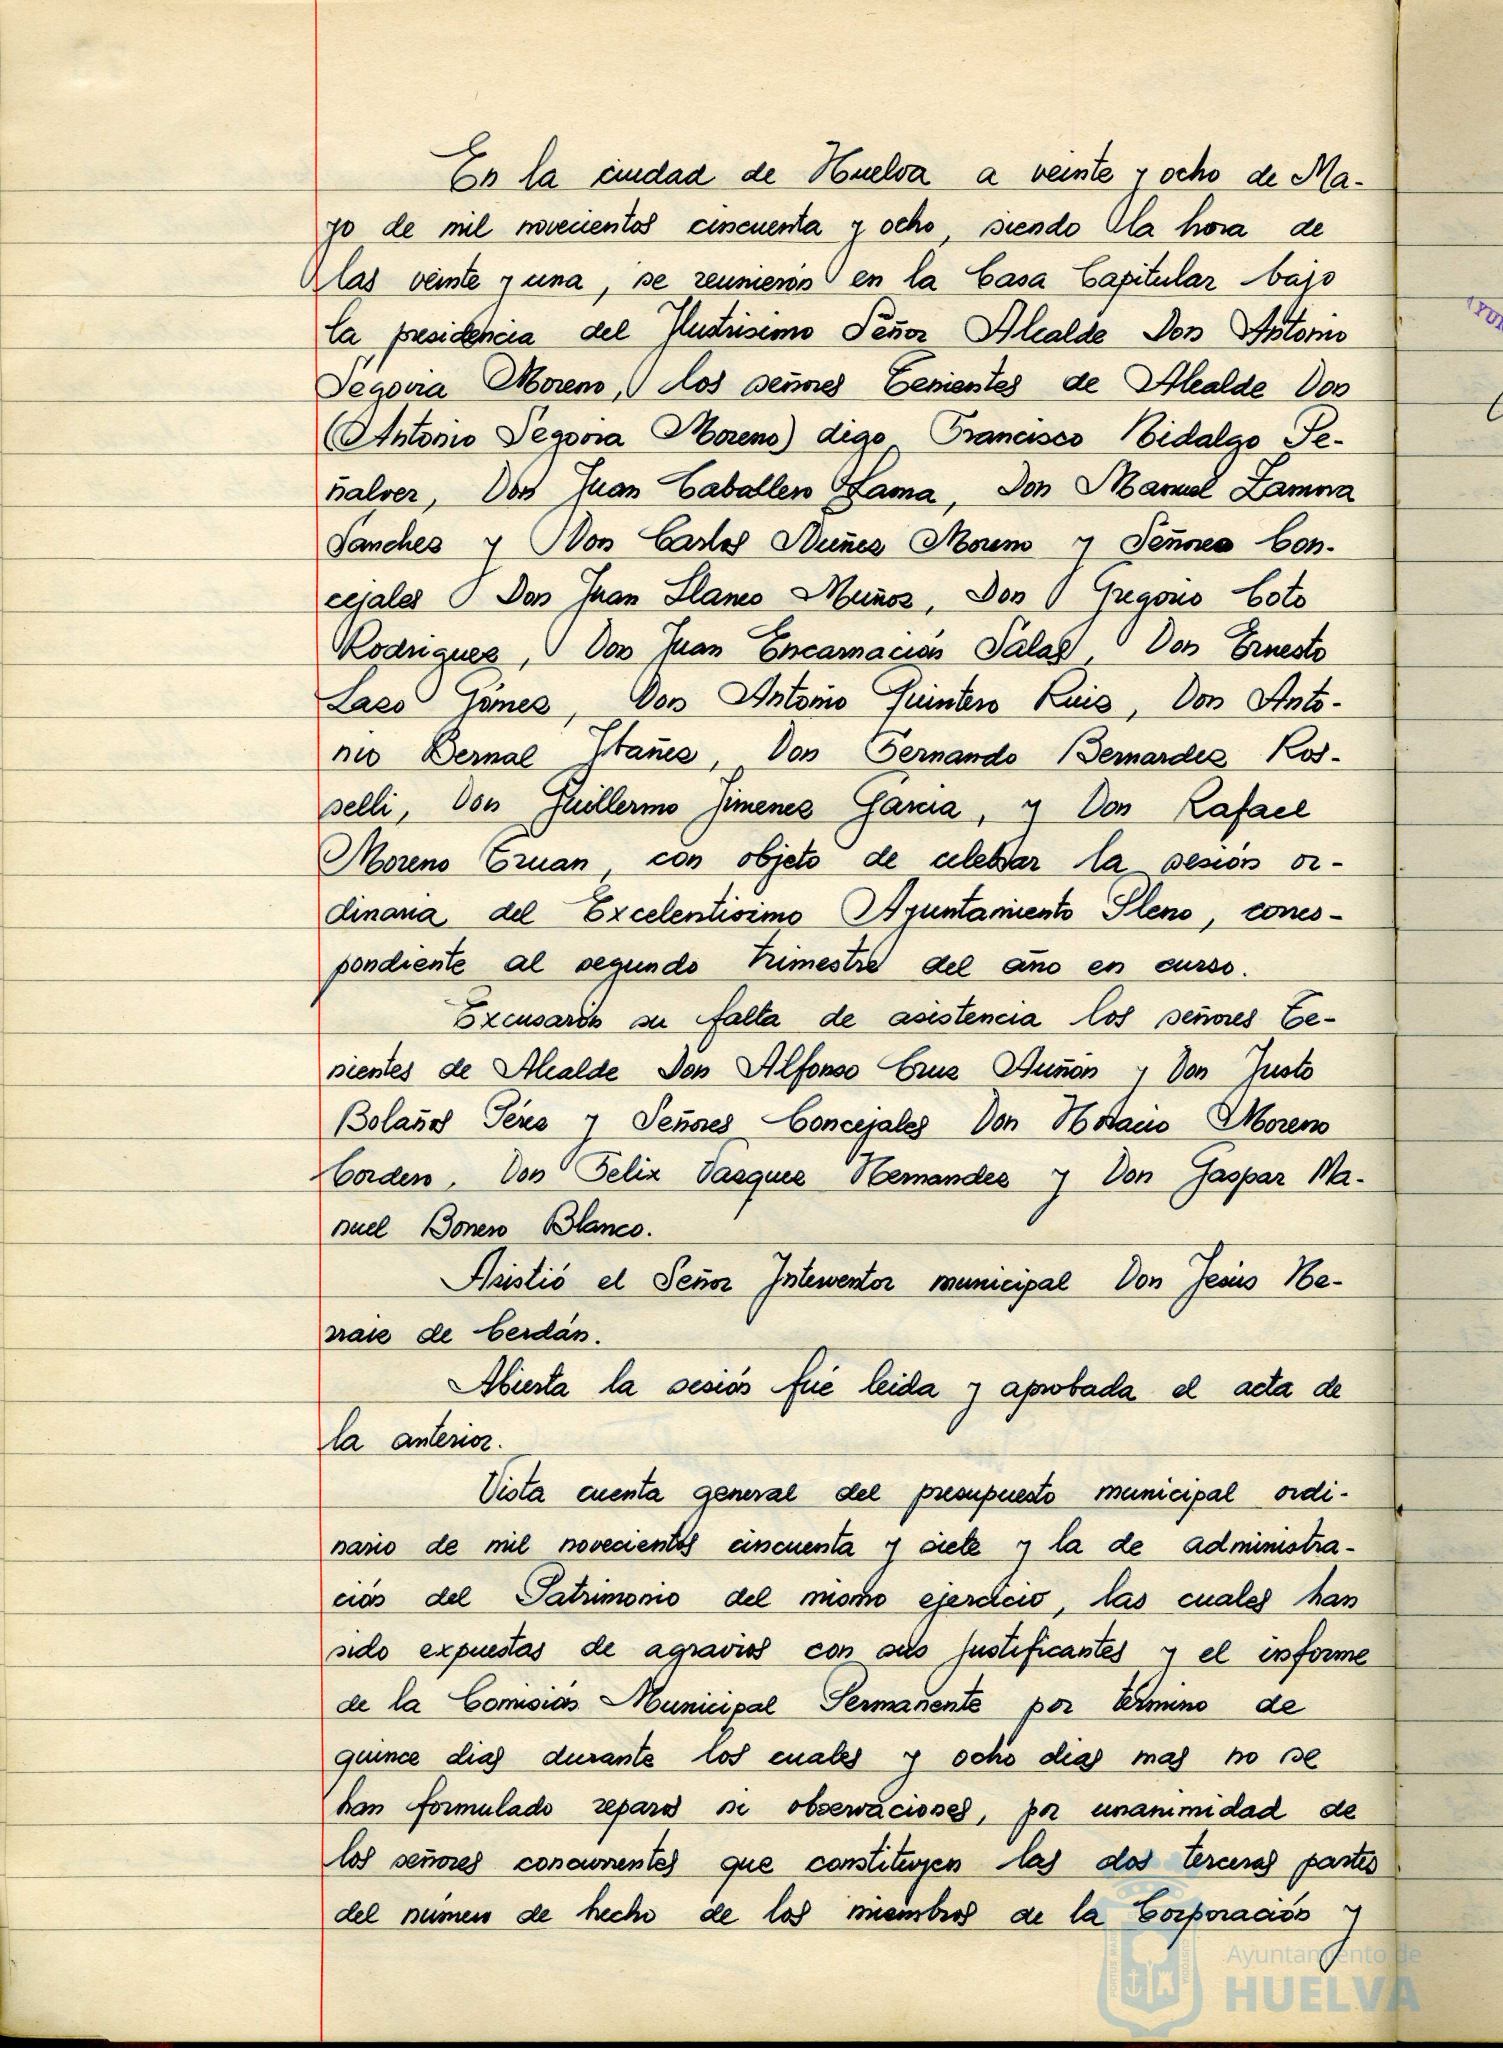 En la ciudad de Huelva a veinte y ocho de Ma-
yo de mil novecientos cincuenta y ocho, siendo la hora de
las veinte y una, se reunieron en la Casa Capitular bajo
la presidencia del Ilustrisimo Señor Alcalde Don Antonio
Segovia Moreno, los señores Tenientes de Alcalde Don
(Antonio Segovia Moreno) digo Francisco Hidalgo Pe-
ñalver, Don Juan Caballero Lama, Don Manuel Zamora
Sanchez y Don Carlos Nuñez Moreno y Señores Con-
cejales Don Juan Llanes Muñoz, Don Gregorio Coto
Rodriguez, Don Juan Encarnación Salas, Don Ernesto
Lazo Gómez, Don Antonio Quintero Ruiz, Don Anto-
nio Bernal Ibañez, Don Fernando Bernardez Ros-
selli, Don Guillermo Jimenez Garcia, y Don Rafael
Moreno Eruan, con objeto de celebrar la sesión or-
dinaria del Excelentisimo Ayuntamiento Pleno, corres-
pondiente al segundo trimestre del año en curso.
Excusarón su falta de asistencia los señores Te-
nientes de Alcalde Don Alfonso Cruz Auñón y Don Justo
Bolaños Pérez y Señores Concejales Don Horacio Moreno
Cordero, Don Felix Vazquez Hernandez y Don Gaspar Ma-
nuel Bonero Blanco.
Asistió el Señor Interventor municipal Don Jesús He-
rraiz de Cerdán.
Abierta la sesión fué leida y aprobada el acta de
la anterior.
Vista cuenta general del presupuesto municipal ordi-
nario de mil novecientos cincuenta y siete y la de administra-
ción del Patrimonio del mismo ejercicio, las cuales han
sido expuestas de agravios con sus justificantes y el informe
de la Comisión Municipal Permanente por termino de
quince dias durante los cuales y ocho dias mas no se
han formulado reparos ni observaciones, por unanimidad de
los señores concurrentes que constituyen las dos terceras partes
del número de hecho de los miembros de la Corporación y
Ayuntamiento de
HUELVA